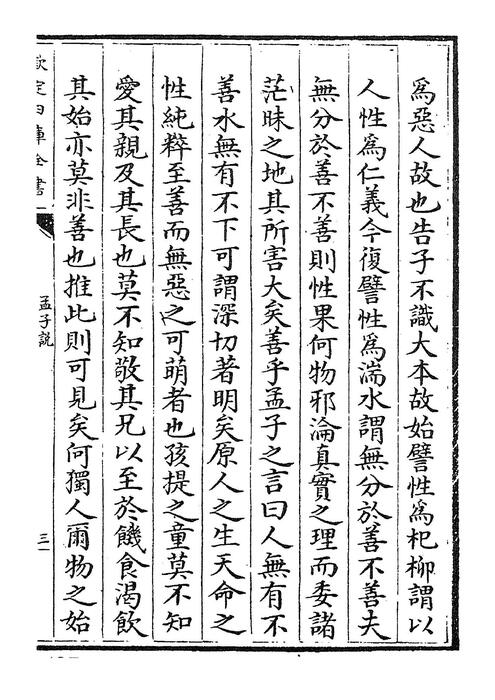 為惡人故也告子不識大本故始譬性為杞柳謂以
人性為仁義今復譬性為湍水謂無分於善不善夫
無分於善不善則性果何物邪淪真實之理而委諸
茫昧之地其所害大矣善乎孟子之言曰人無有不
善水無有不下可謂深切著明矣原人之生天命之
性純粹至善而無惡之可萌者也孩提之童莫不知
愛其親及其長也莫不知敬其兄以至於饑食渴飲
其始亦莫非善也推此則可見矣何獨人爾物之始
欽定四庫全書
孟子說
三一